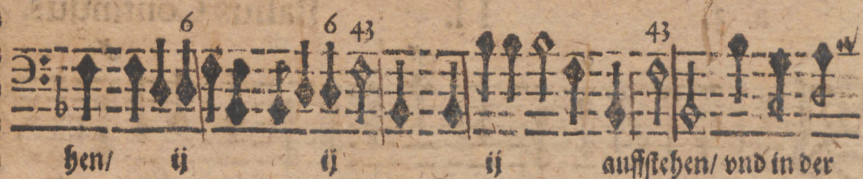 6 6 43 43
hen/ ij ij ij auffstehen/ vnd in der